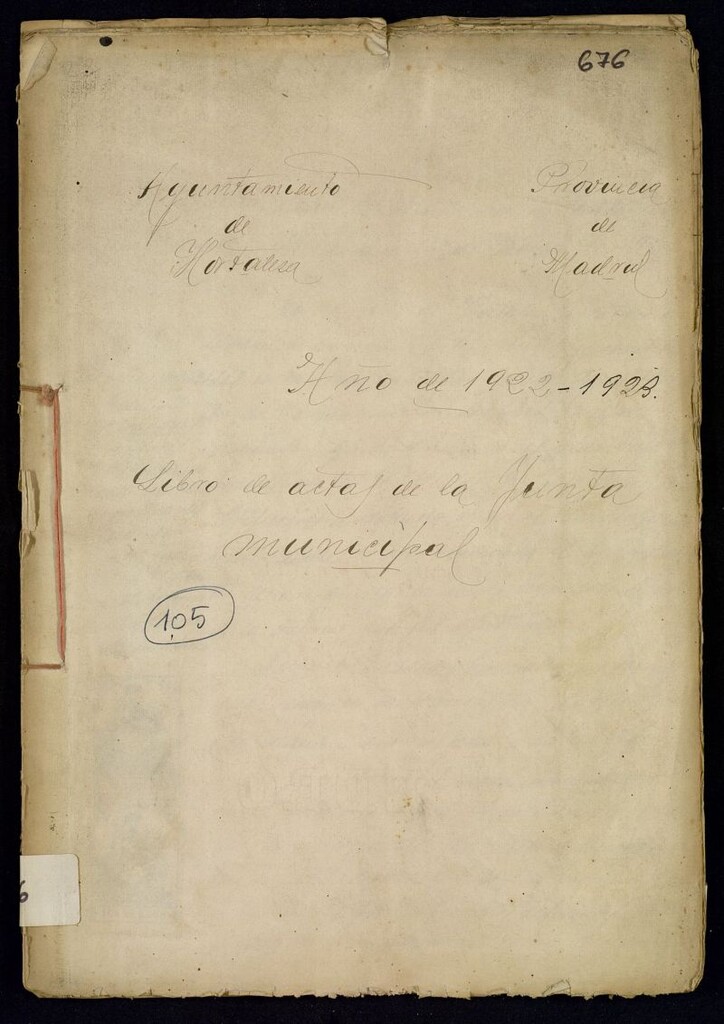 676
Ayuntamiento
de
Hortaleza
Provincia
de
Madrid
Año de 1922-1923.
Libro de actas de la Junta
municipal
105
6